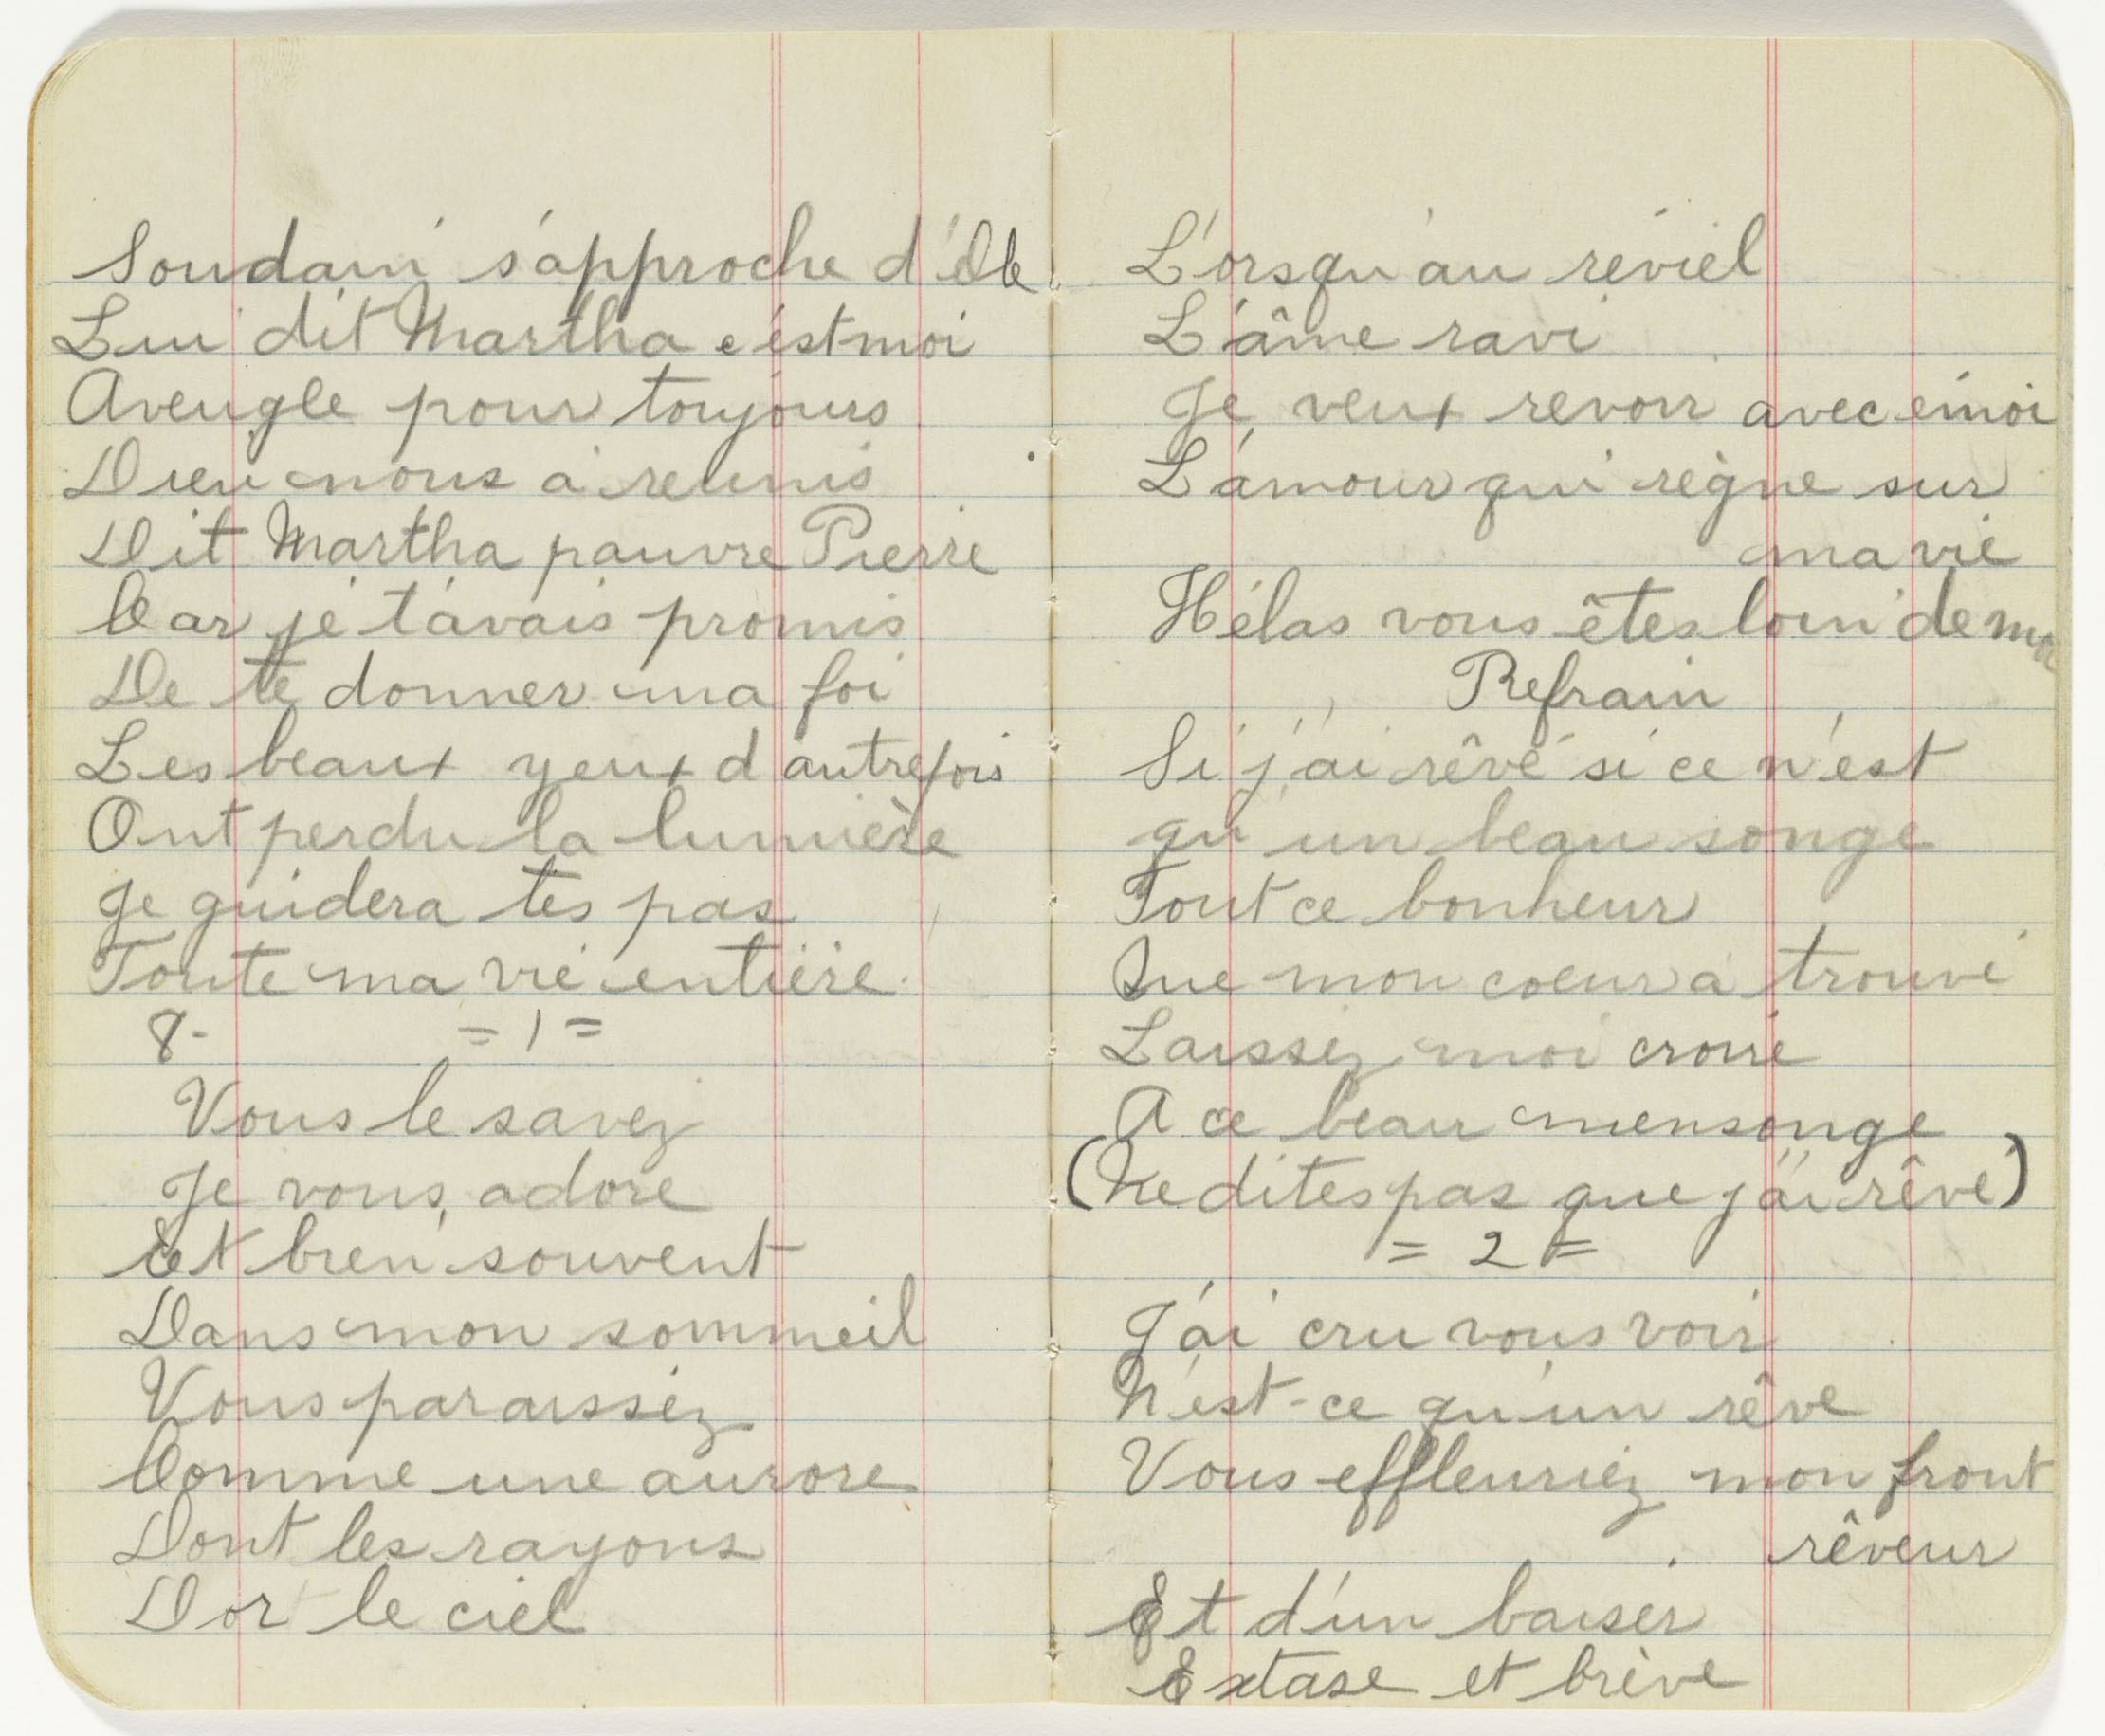 Soudain s'approche d'Elle
Lui dit Martha c'est moi
Aveugle pour toujours
Dieu nous a reunis
Dit Martha pauvre Pierre
Car je t'avais promis
De te donner ma foi
Les beaux yeux d'autrefois
Ont perdu la lumière
Je guidera tes pas
Toute ma vie entière.
8- =1=
Vous le savez
Je vous adore
Et bien souvent
Dans mon sommeil
Vous paraissez
Comme une aurore
Dont les rayons
Dor le ciel
L'orsqu'au reviel
L'âme ravi
Je veux revoir avec émoi
L'amour qui règne sur
ma vie
Hélas vous êtes loin de moi
Refrain
Si j'ai rêvé si ce n'est
qu'un beau songe
Tout ce bonheur
Que mon coeur a trouvé
Laissez moi croire
A ce beau mensonge
(Ne dites pas que j'ai rêvé)
= 2 =
J'ai cru vous voir
N'est-ce qu'un rêve
Vous effleuriez mon front
rêveur
Et d'un baiser
Extase et brève